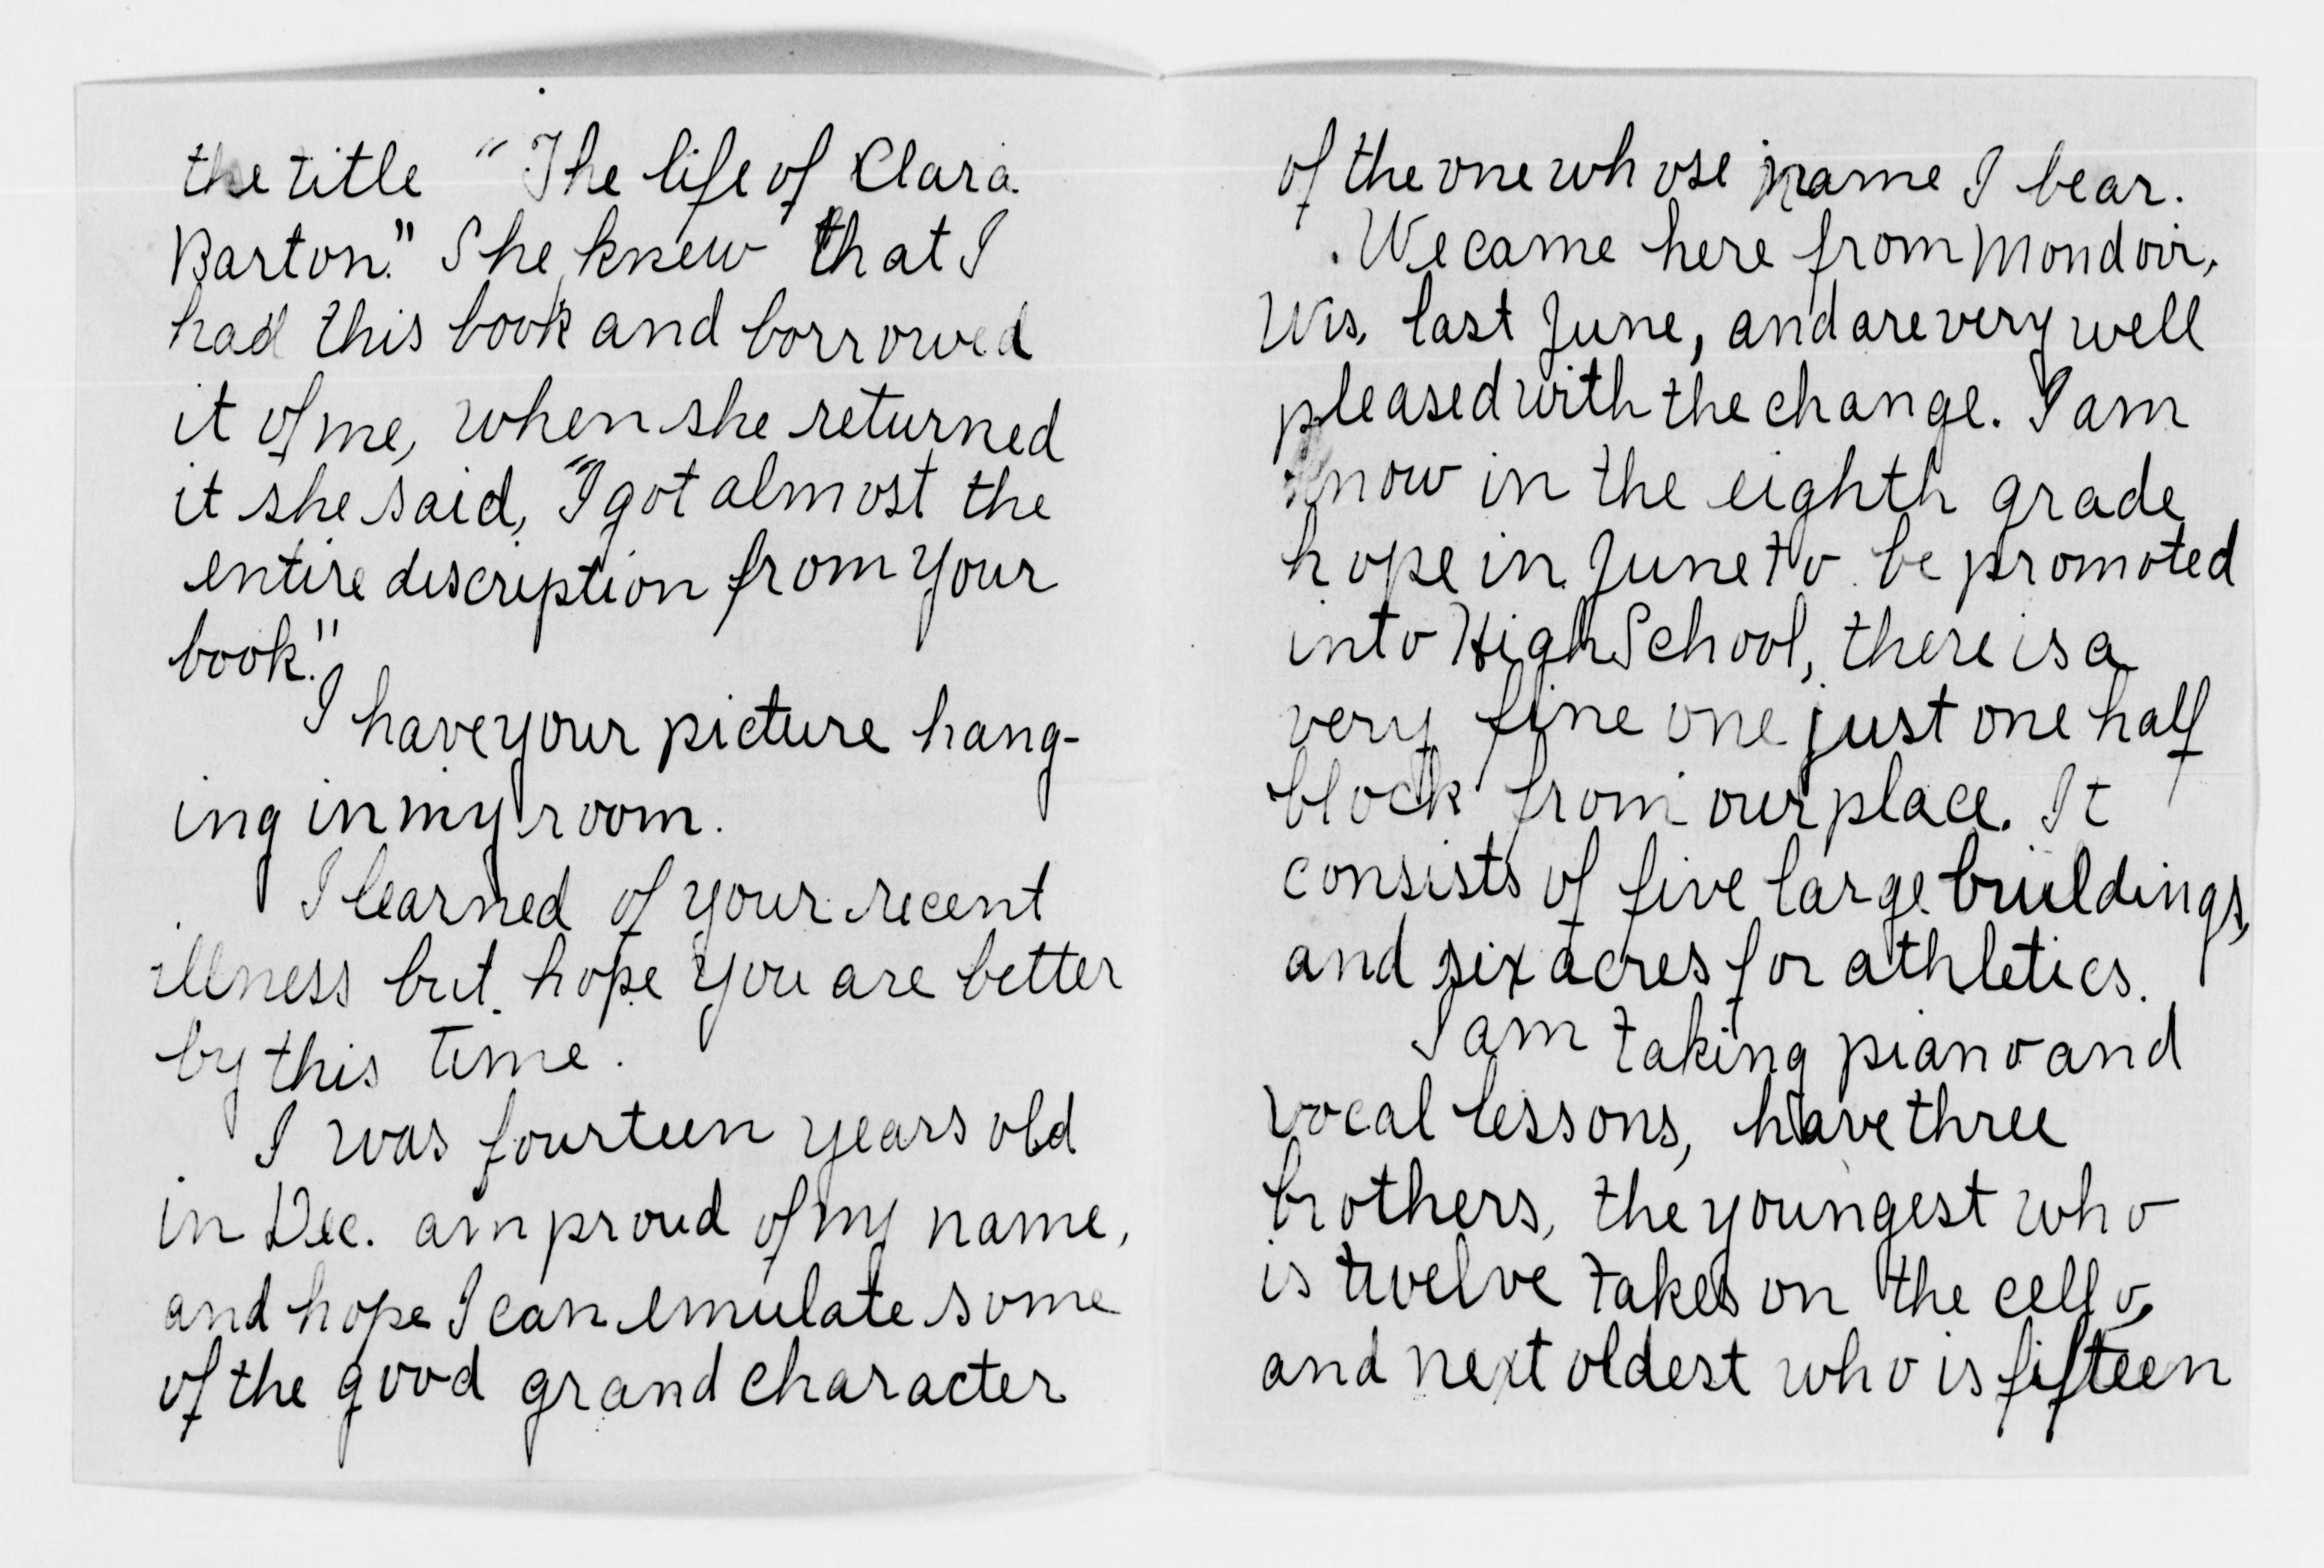 the title "The life of Clara
Barton." She knew that I
had this book and borrowed
it of me, when she returned
it she said, "I got almost the
entire discription from your
book."
I have your picture hang-
ing in my room.
I learned of your recent
illness but hope you are better
by this time.
I was fourteen years old
in Dec. am proud of my name,
and hope I can emulate some
of the good grand character
of the one whose name I bear.
We came here from Mondovi,
Wis. last June, and are very well
pleased with the change. I am
now in the eighth grade
hope in June to be promoted
into High School, there is a
very fine one just one half
block from our place. It
consists of five large buildings,
and six acres for athletics.
I am taking piano and
vocal lessons, have three
brothers, the youngest who
is twelve takes on the cello,
and next oldest who is fifteen